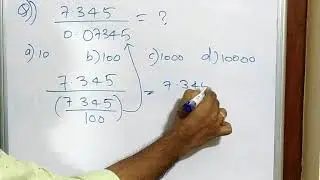 Q) 7.345 / 0.07345 = ?
a) 10 b) 100 c) 1000 d) 10000
7.345 / (7.345 / 100) = 7.34